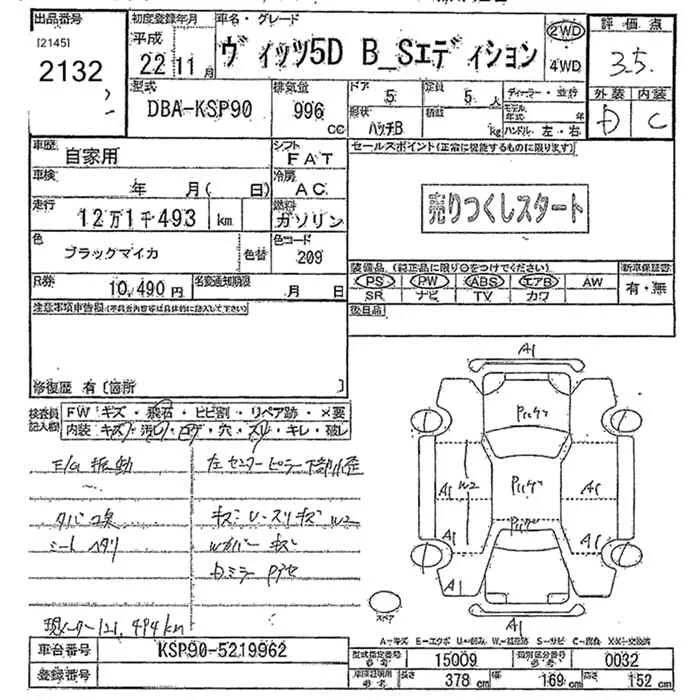 出品番号
I21451
2132
初度登録年月
平成
22 11月
車名・グレード
ヴィッツ5D B_Sエディション
2WD
4WD
評価点
3.5
外装 内装
D C
型式
DBA-KSP90
排気量
996
CC
ドア
5
定員
5 人
ディーラー・並行
形状
ハッチB
積載
kg
モデル年式
年
ハンドル 左・右
車歴
自家用
シフト
FAT
セールスポイント(正常に機能するものに限ります)
売りつくしスタート
車検
年 月( 日)
冷房
AC
走行
12万1千493 km
燃料
ガソリン
色
ブラックマイカ
色替
色コード
209
装備品 (純正品に限り○をつけてください)
新車保証書
PS PW ABS エアB AW
SR ナビ TV カワ
有・無
R券
10,490円
名変通知期限
月 日
後日品
注意事項申告欄(不具合内容は具体的に記入して下さい)
修復歴 有〔箇所 〕
検査員記入欄
FW キズ・飛石・ヒビ割・リペア跡・×要
内装 キズ・汚レ・コゲ・穴・スレ・キレ・破レ
E/G 振動
左センターピラー下部小歪
タバコ臭
キズ・U・スリキズ W2
シートヘタリ
Wカバー キズ
Dミラー
現メーター121,494km
A1
A1
A1
A1
A1
A1
W2
スペア
車台番号
KSP90-5219962
登録番号
型式指定番号
15009
類別区分番号
0032
長さ
378 cm
幅
169 cm
高さ
152 cm